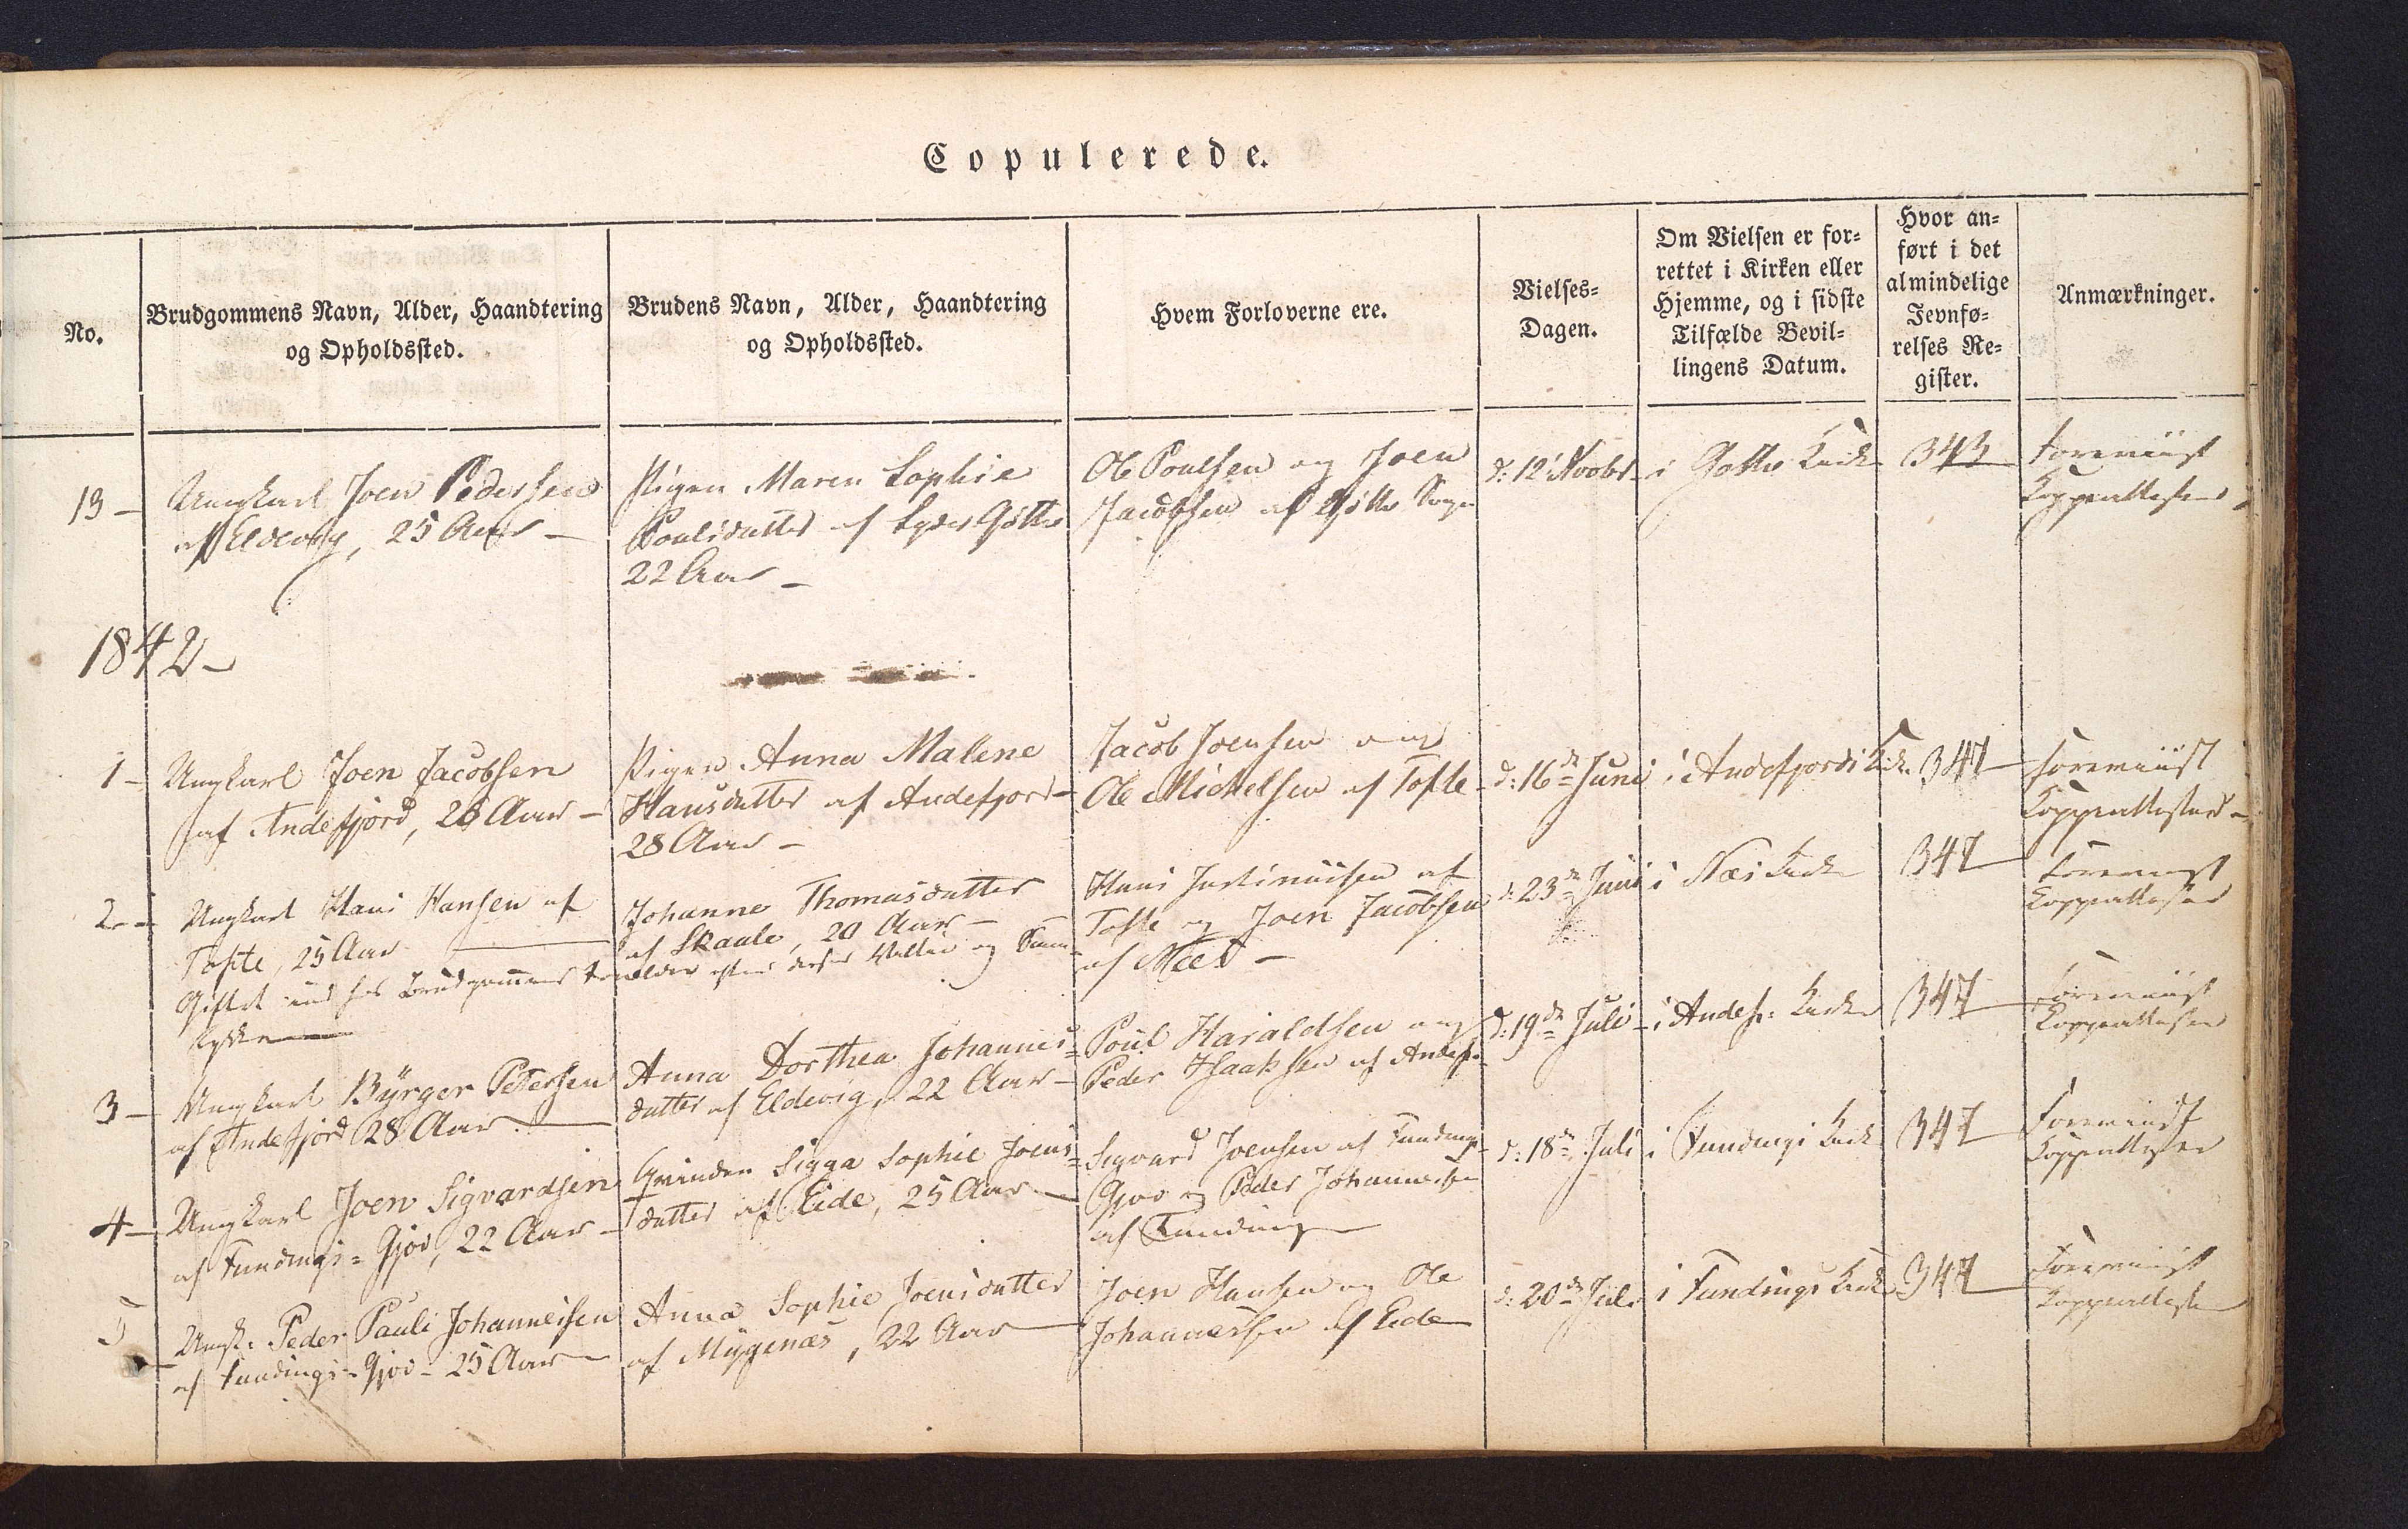 Copulerede.
No.
Brudgommens Navn, Alder, Haandtering
og Opholdssted.
Brudens Navn, Alder, Haandtering
og Opholdssted.
Hvem Forloverne ere.
Vielses-
Dagen.
Om Vielsen er for-
rettet i Kirken eller
Hjemme, og i sidste
Tilfælde Bevil-
lingens Datum.
Hvor an-
ført i det
almindelige
Jevnfø-
relses Re-
gister.
Anmærkninger.
13 –
Ungkarl Joen Pedersen
af Eldevig, 25 Aar –
Pigen Maren Sophie
Poulsdatter af Syder Gøthe
22 Aar –
Ole Poulsen og Joen
Jacobsen af Gøthe Sogn
d: 12 Novbr
i Gøthe Kirke
343
Foreviist
Koppeattester
1842 –
1 –
Ungkarl Joen Jacobsen
af Andefjord, 26 Aar –
Pigen Anna Malene
Hansdatter af Andefjord –
28 Aar –
Jacob Joensen og
Ole Michelsen af Tofte
d: 16de Juni
i Andefjords Kirke
347
Foreviist
Koppeattester –
2 –
Ungkarl Hans Hansen af
Tofte, 25 Aar
Giftet ind hos Brudgommens Forældre efter deres
Johanne Thomasdatter
af Skaale, 20 Aar –
Hans af
Tofte og Joen Jacobsen
af
d: 23de Juni
i Næs Kirke
347
Foreviist
Koppeattester
3 –
Ungkarl Byrger Petersen
af Andefjord 28 Aar
Anna Dorthea Johannes=
datter af Eldevig, 22 Aar –
Poul Haraldsen og
Peder Isaksen af Andef.
d: 19de Juli
i Andef: Kirke
347
Foreviist
Koppeattester
4 –
Ungkarl Joen Sigvardsen
af Fundings=Gjov, 22 Aar –
Qvinden Sigga Sophie Joens=
datter af Eide, 25 Aar –
Sigvard Joensen af Fundings
Gjov og Peder Johannesen
af Funding
d: 18de Juli
i Fundings Kirke
347
Foreviist
Koppeattester
5
Ungk. Peder Pauli Johannesen
af Fundings-Gjov – 25 Aar
Anna Sophie Joensdatter
af Mygenæs, 22 Aar
Joen Hansen og Ole
Johannessen af Eide
d: 20de Juli
i Fundings Kirke
347
Foreviist
Koppeattester